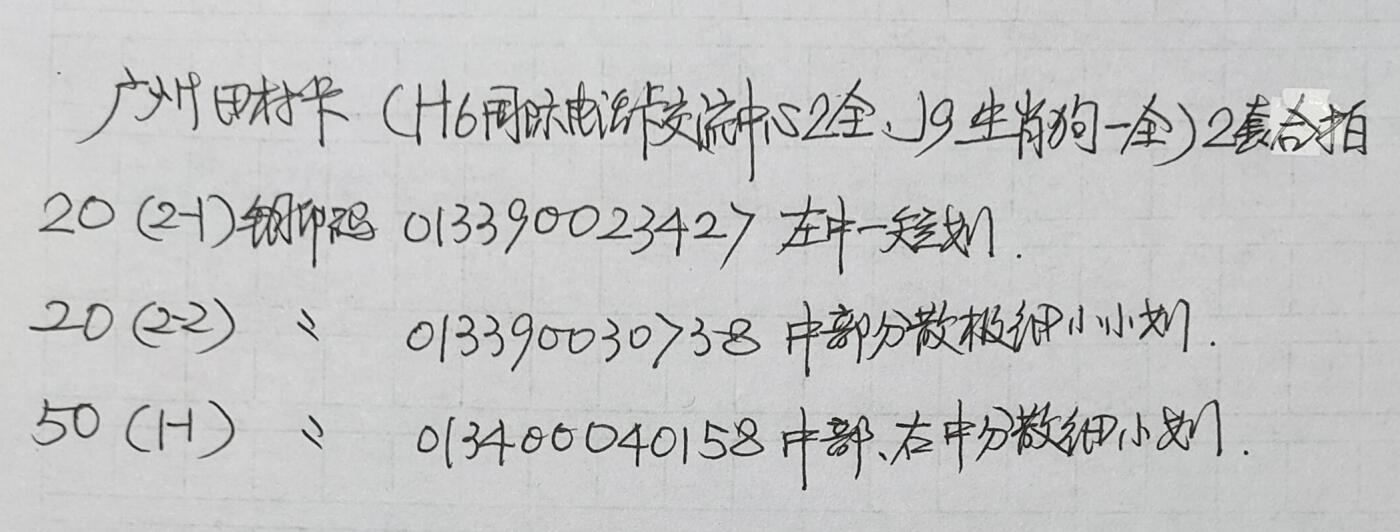 广州田村卡（H6国际电话卡交流中心2全、J9生肖狗一全）2套合拍
20（2-1）钢印码 013390023427 左中一短划.
20（2-2） 〃 013390030738 中部分散极细小小划.
50（1-1） 〃 013400040158 中部、右中分散细小划.